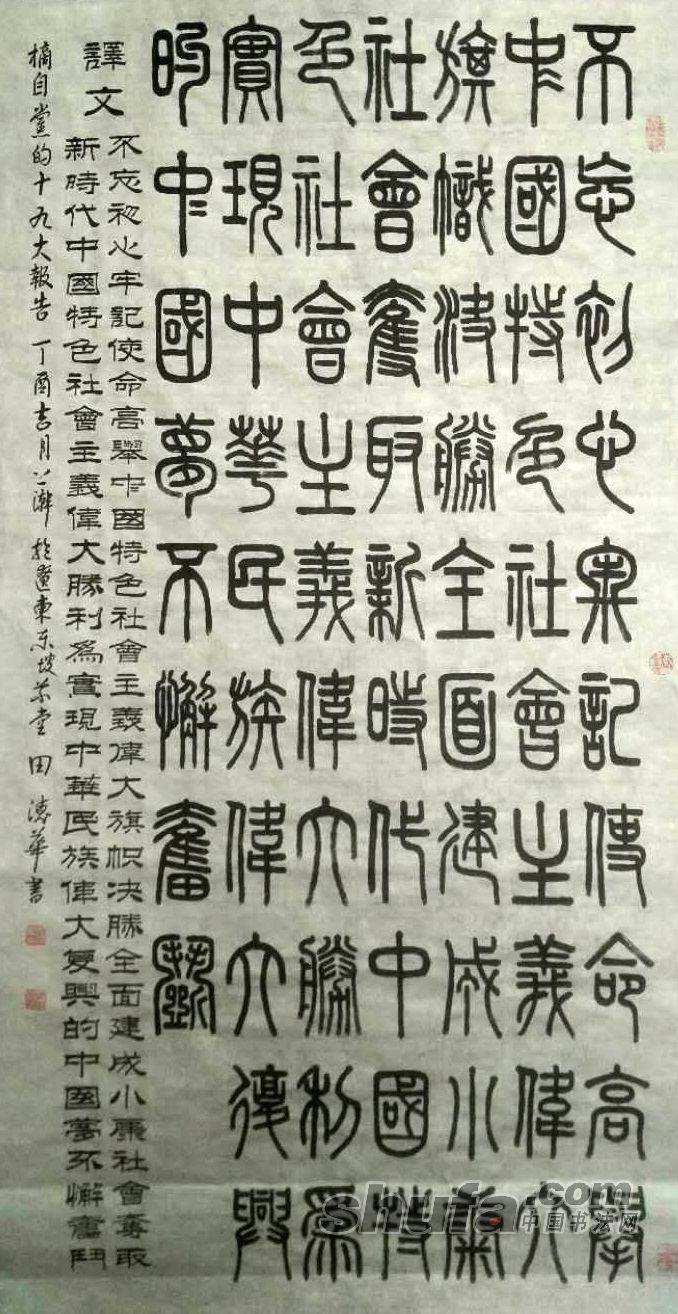 不忘初心牢記使命高舉
中國特色社會主義偉大
旗幟決勝全面建成小康
社會奪取新時代中國特
色社會主義偉大勝利爲
實現中華民族偉大復興
的中國夢不懈奮鬥
譯文
不忘初心牢記使命高舉中國特色社會主義偉大旗帜决勝全面建成小康社會奪取
新時代中國特色社會主義偉大勝利爲實現中華民族偉大复興的中國夢不懈奮鬥
摘自黨的十九大報告 丁酉吉月 於遼東 堂 田德華書
shufa.com
中国书法网